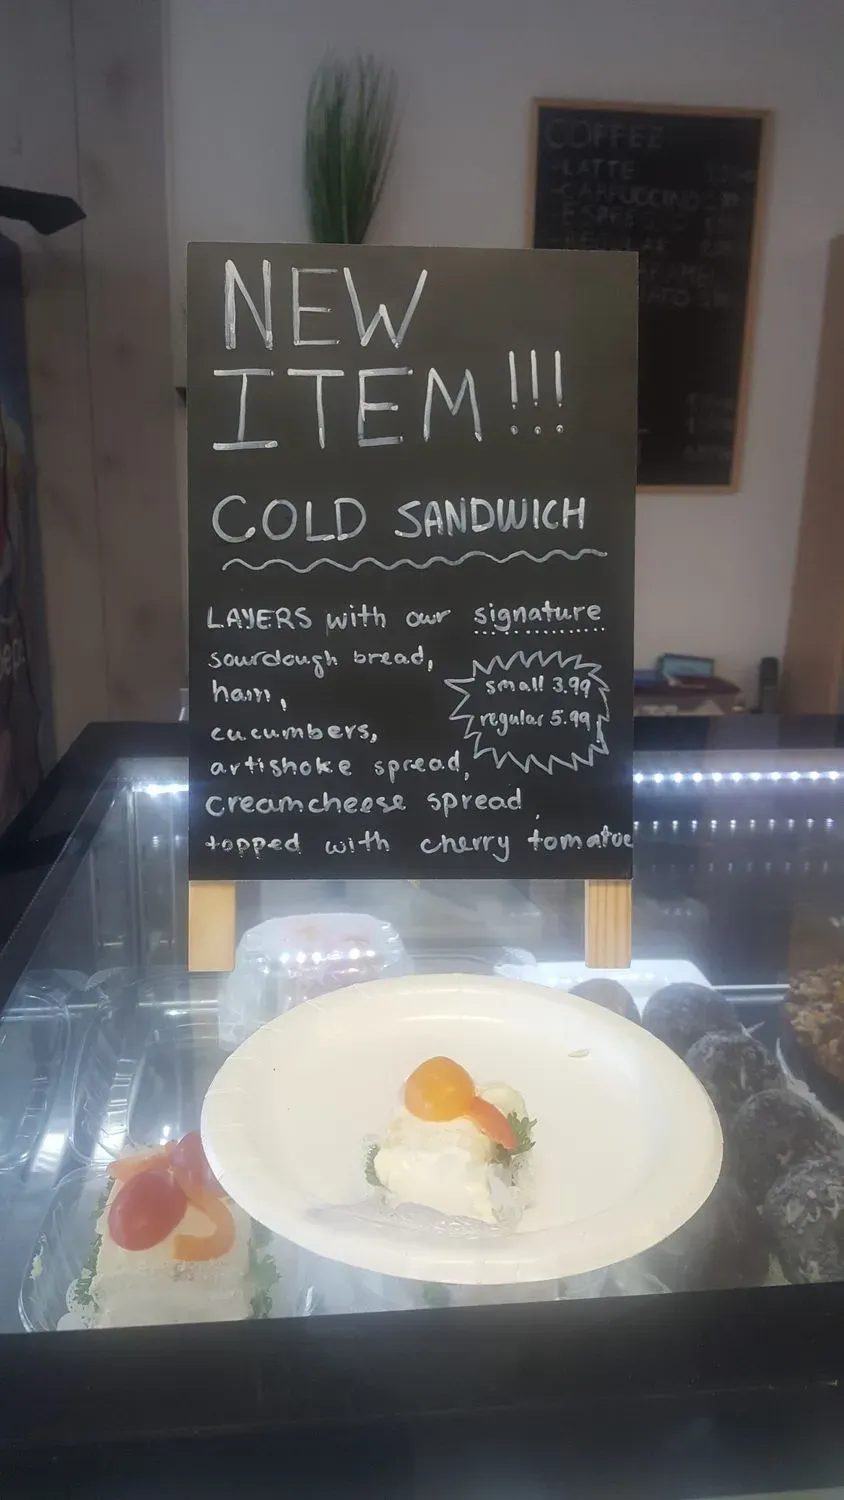 NEW
ITEM!!!
COLD SANDWICH
LAYERS with our signature
sourdough bread,
ham,
cucumbers,
artishoke spread,
creamcheese spread,
topped with cherry tomatoe
small 3.99
regular 5.99
COFFEE
-LATTE
-CAPPUCCINO